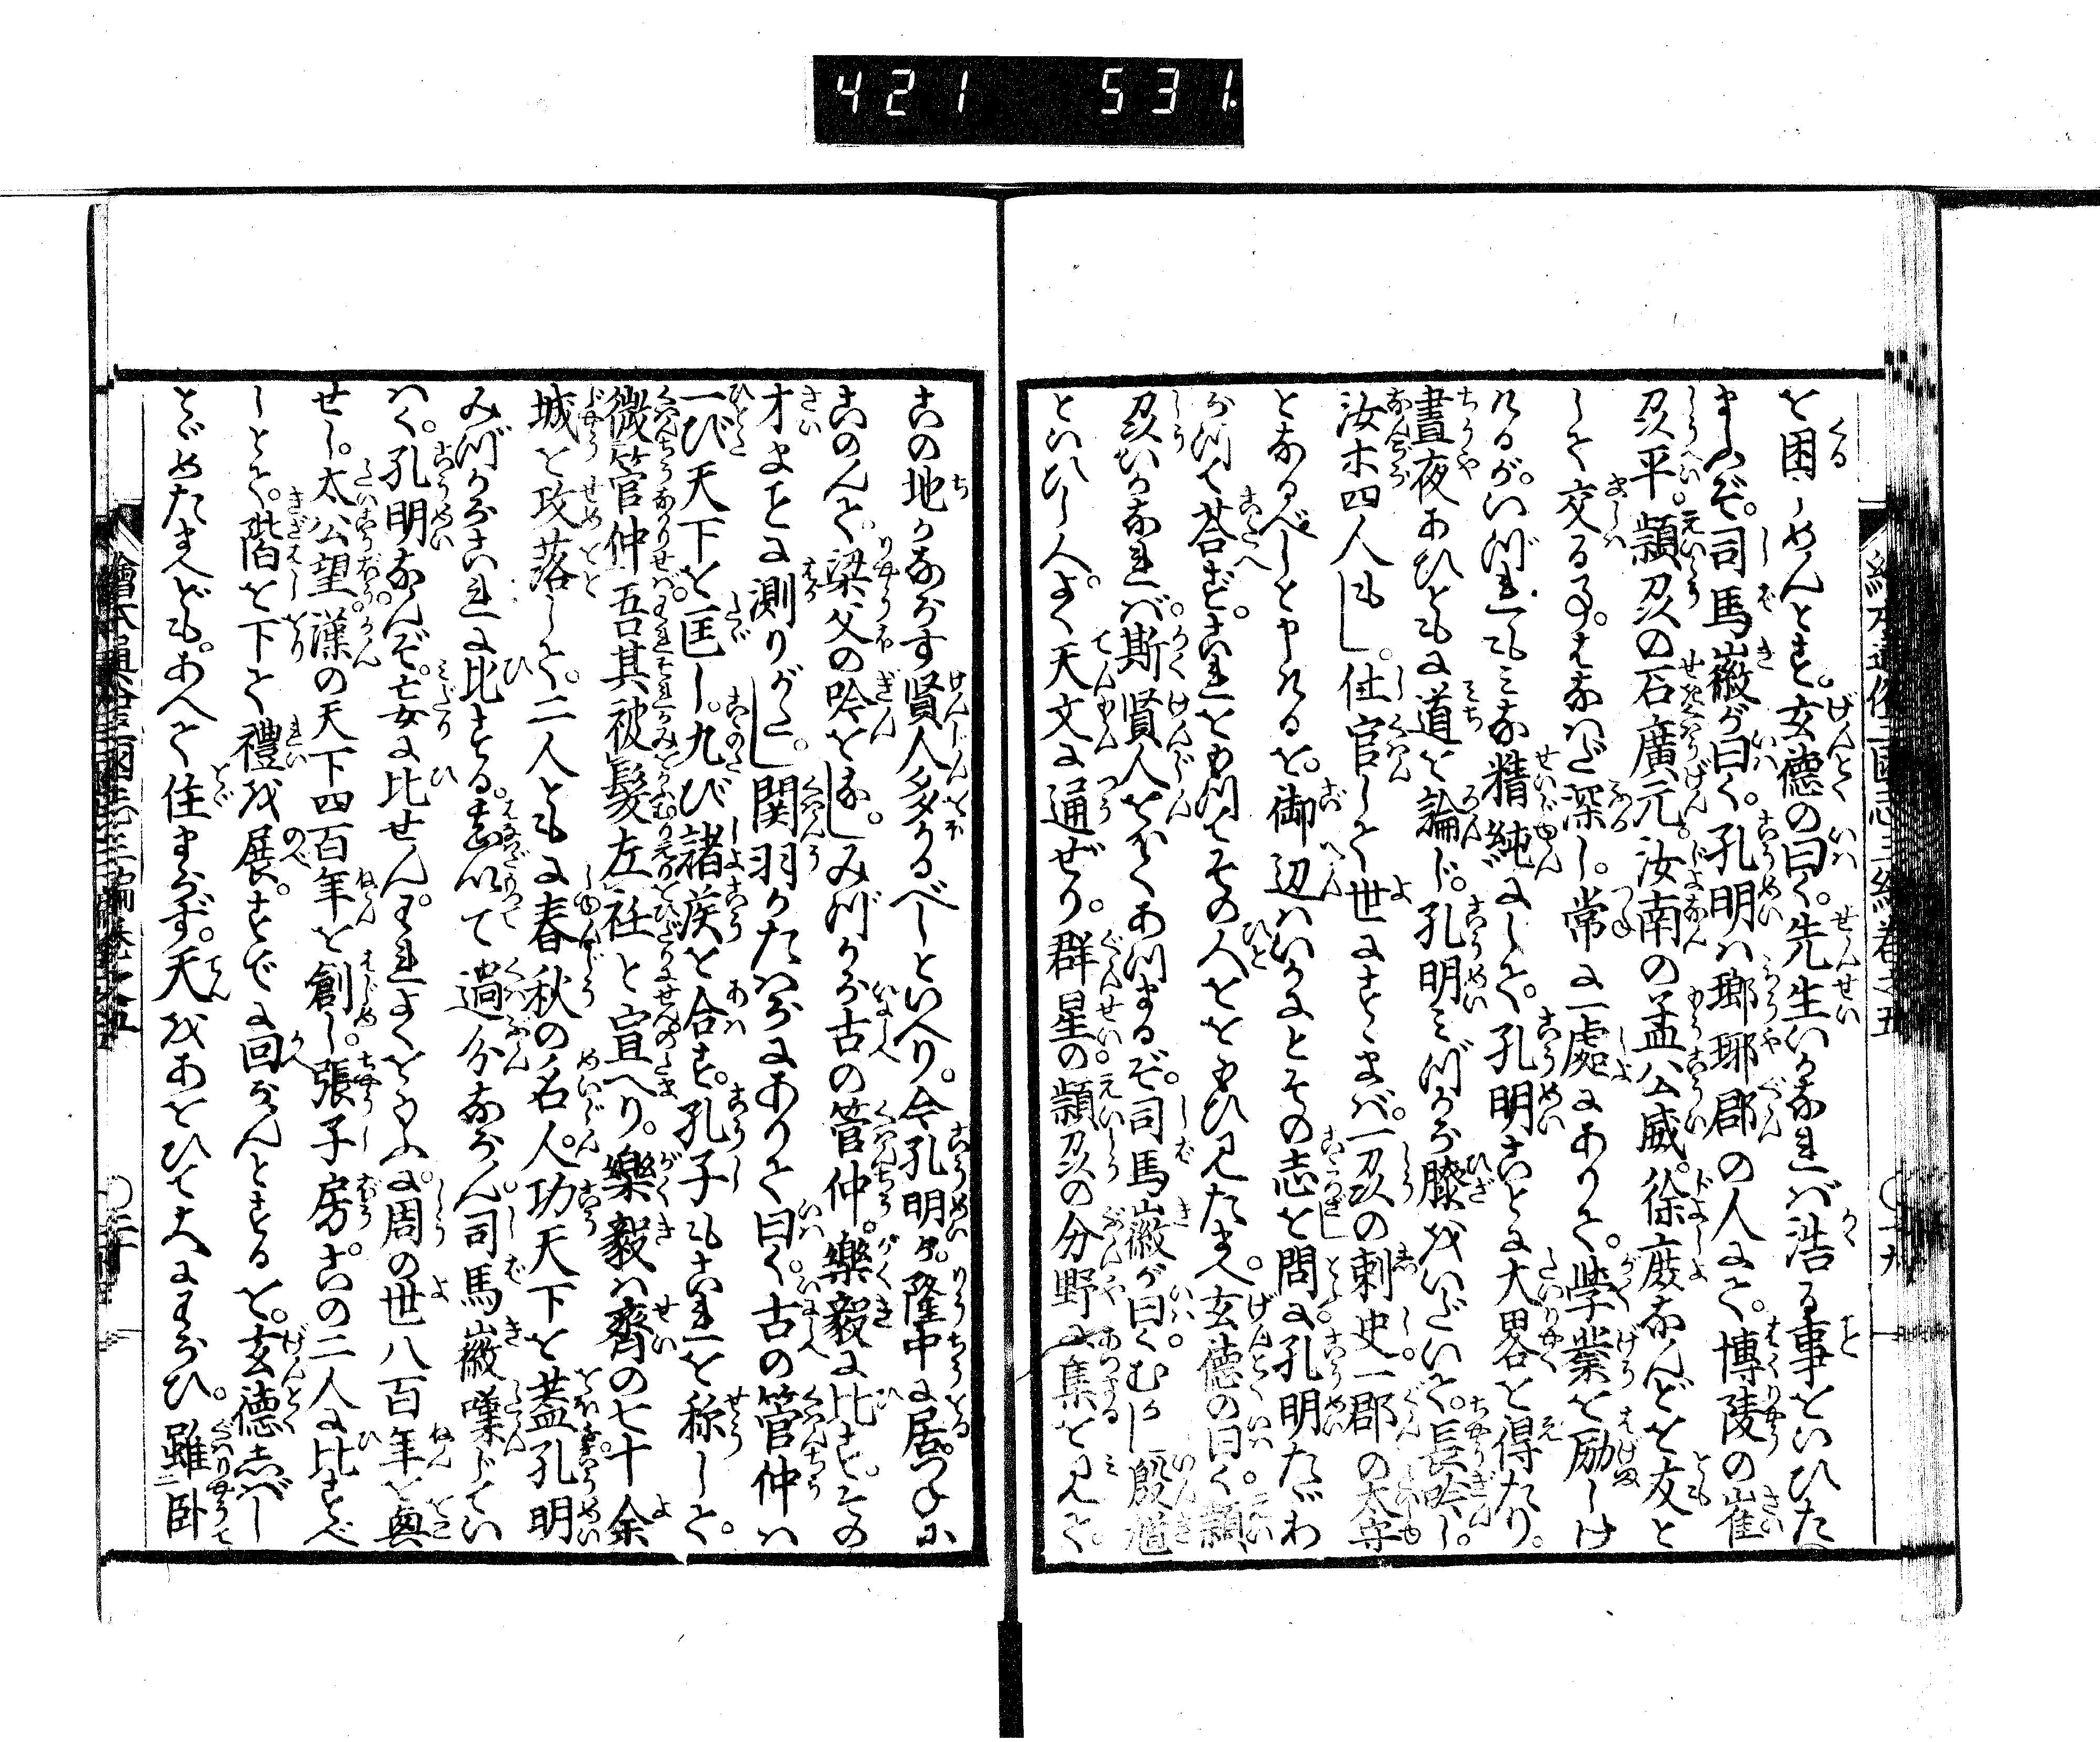 421 531
を困しめんとす。玄徳の曰く。先生いかなれば浩る事をいひた
まふぞ。司馬徽が曰く。孔明ハ瑯琊郡の人にて。博陵の崔
州平。頴州の石廣元汝南の孟公威。徐庶なんどを友と
して交る事。はなハだ深し。常に一處にありて。学業を励しけ
れるが。いづれもミな精純にして。孔明ことに大畧を得たり。
晝夜あひともに道を論じ。孔明ミづから膝をいだいて。長吟し。
汝ホ四人もし。仕官して世にすゝまバ。一州の刺史一郡の太守
となるべしと申けるを。御辺ハいかにとその志を問に孔明たゞわ
らつて荅ず。これをもつてその人をおもひ見たまへ。玄徳の曰く頴
州いかなれバ斯賢人をおくあつまるぞ。司馬徽が曰くむかし殷馗
といひし人。よく天文に通ぜり。群星の頴州の分野に集を見て。
この地かならず賢人多かるべしといへり。今孔明が。隆中に居。つねに
このんで。梁父の吟をなし。みづから古の管仲。樂毅に比す。その
才まことに測りがたし。関羽かたハらにありて曰く。古の管仲ハ
一び天下を匡し。九び諸侯を合す。孔子もこれを称して。
微管仲吾其被髮左衽と宣へり。樂毅ハ齊の七十余
城を攻落して。二人ともに春秋の名人。功天下を蓋孔明
みづからこれに比する。甚以て過分ならん司馬徽嘆じてい
はく。孔明なんぞ。妄に比せん。われよくおもふに。周の世八百年を興
せし。太公望漢の天下四百年を創し。張子房。この二人に比すべ
しとて。階を下て禮を展。すでに回らんとするを。玄徳しバし
とゞめたまへども。あへて住まらず。天をあをひで大にわらひ。雖臥